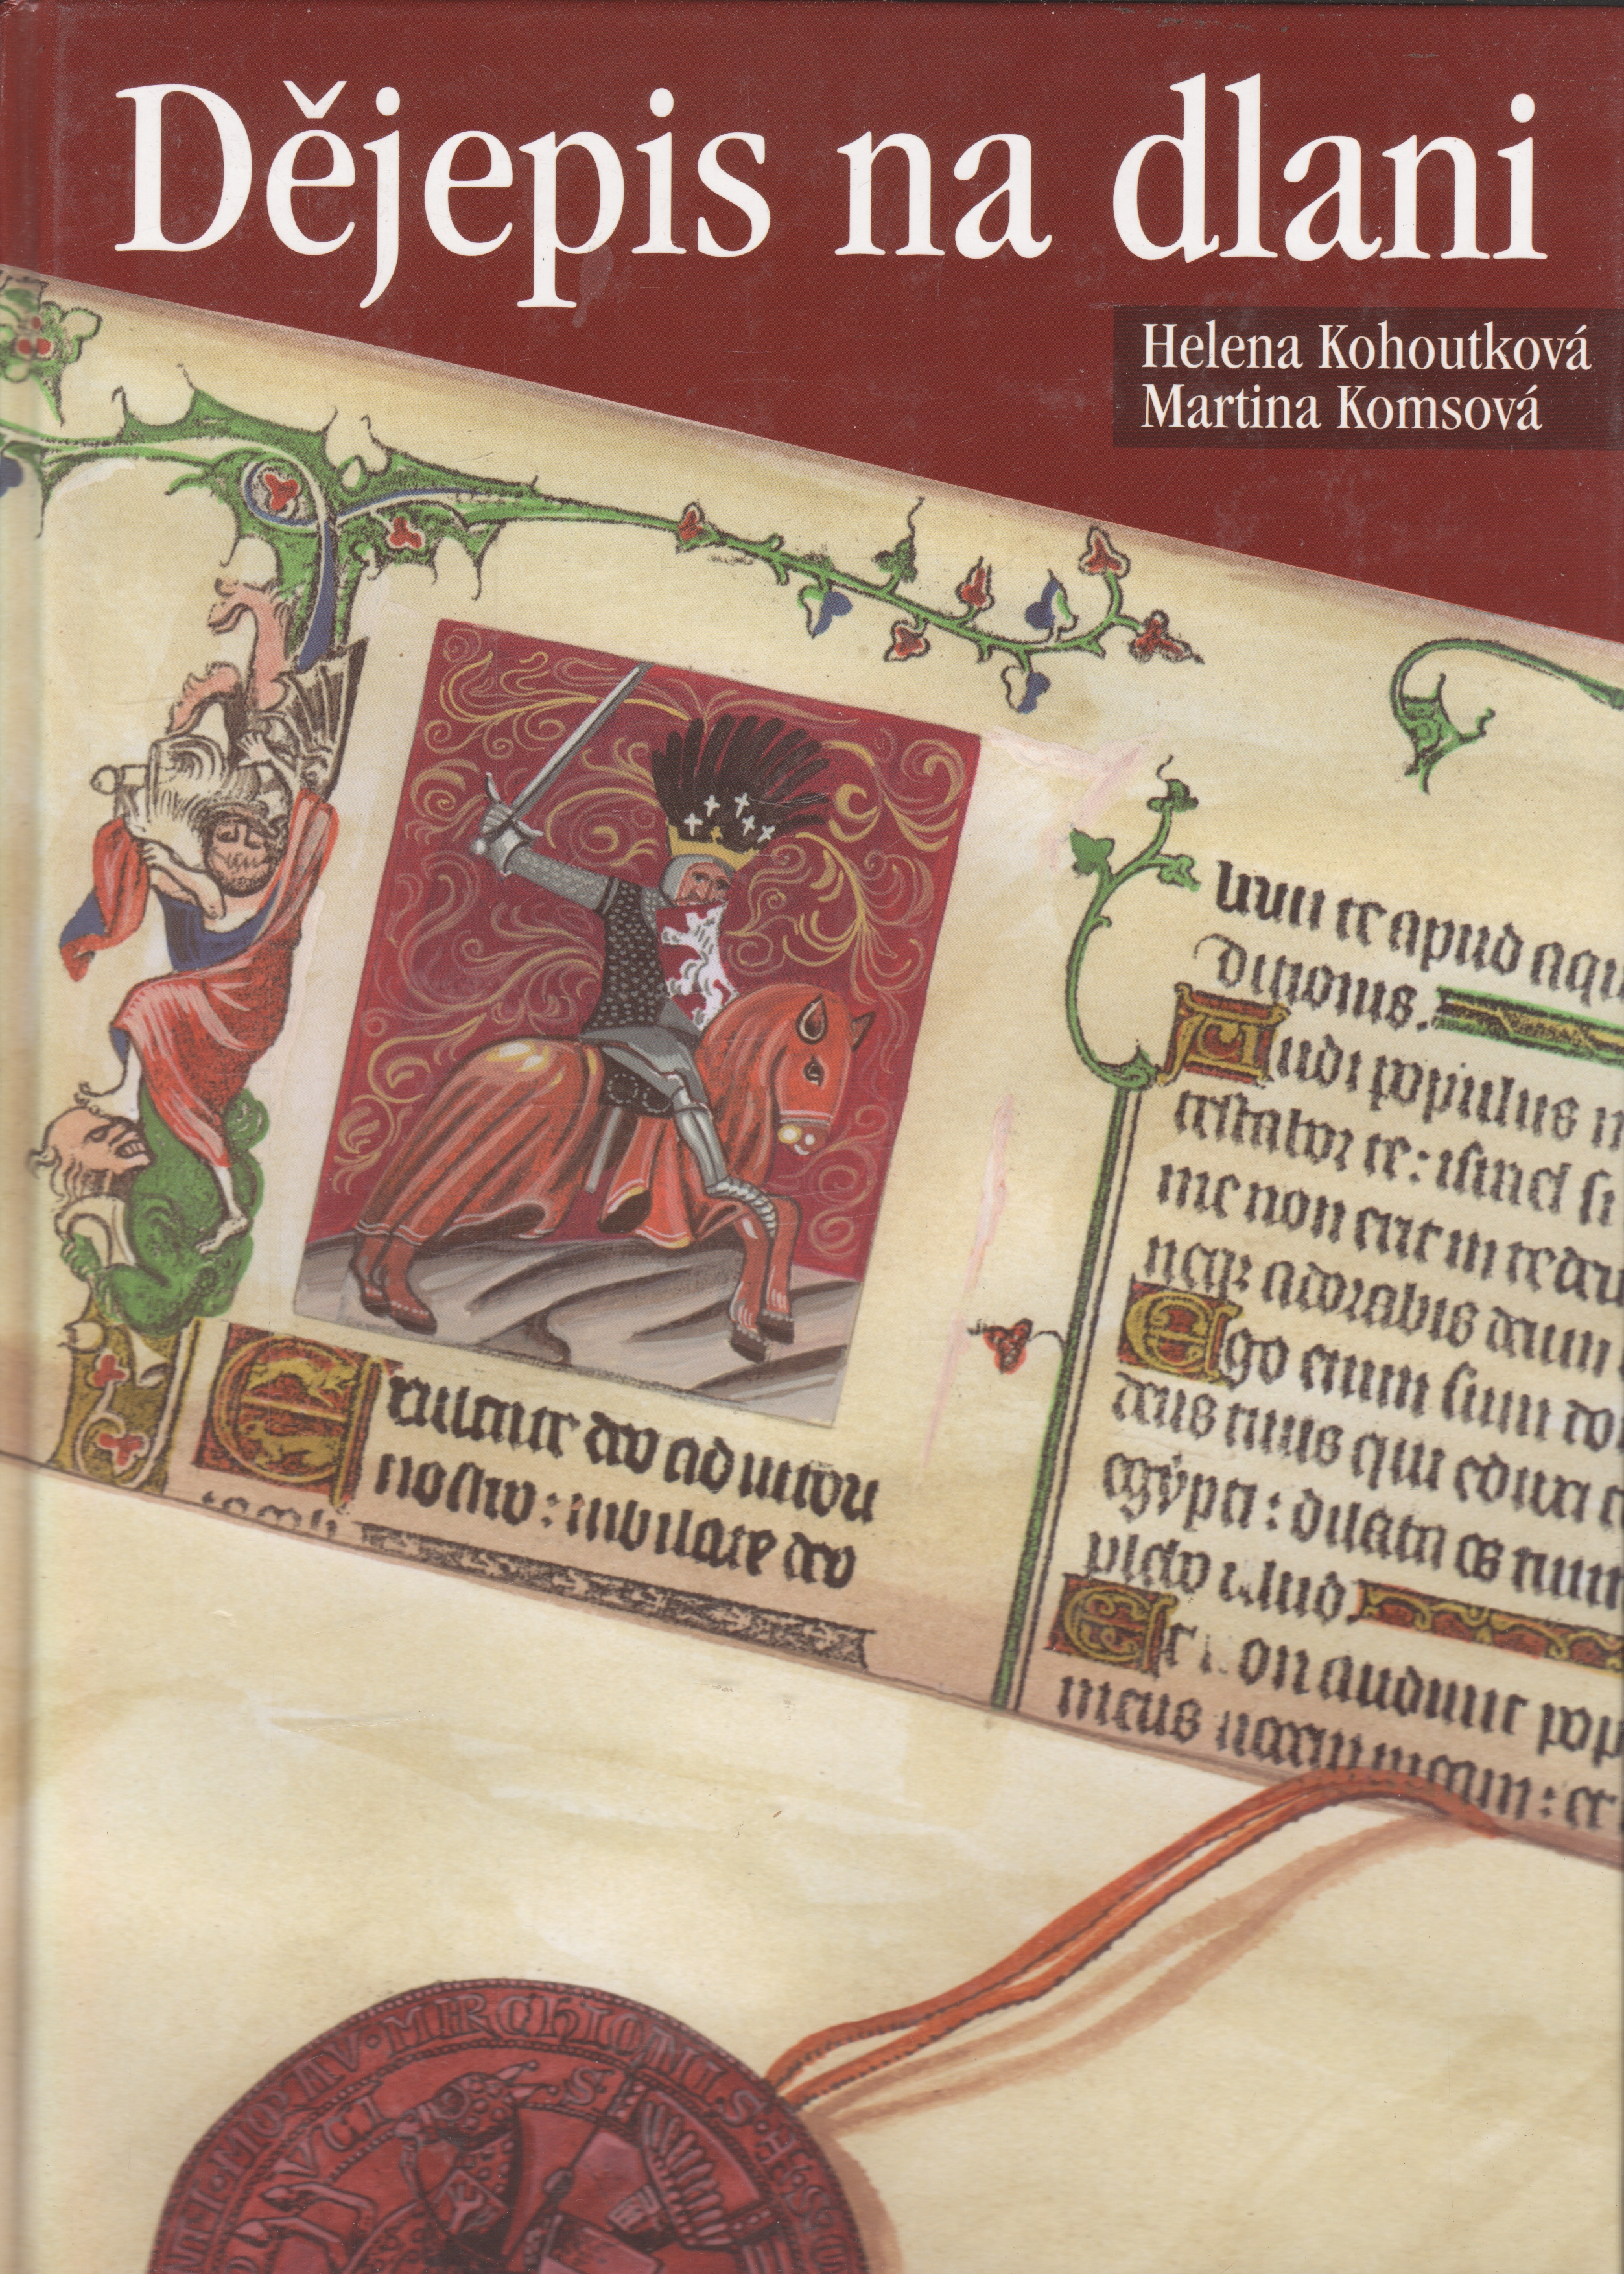 Dějepis na dlani
Helena Kohoutková
Martina Komsová
apud aqu
Audi populus m
testabor te: israel si
me non erit in te deu
neque adorabis deum
Ego enim sum do
deus tuus qui eduxi
egypti: dilata os tuum
plebo illud.
Et non audiuit pop
meus
Exultate deo adiutori
nostro: iubilate deo
MORAV·MARCHIONIS